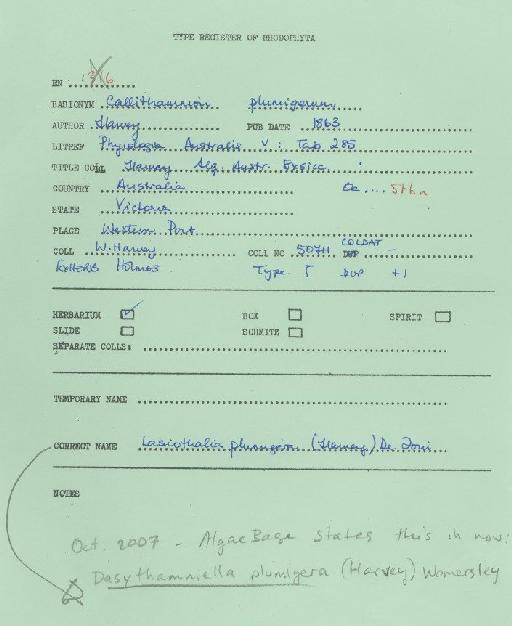 TYPE REGISTER OF RHODOPHYTA
RN 1316
BASIONYM Callithamnion plumigerum
AUTHOR Harvey PUB DATE 1863
LITREF Phycologia Australis V : Tab 285
TITLE COLL Harvey Alg. Austr. Exsicc.
COUNTRY Australia
STATE Victoria
PLACE Western Port
COLL W. Harvey COLL NO 507H COLDAT
Holmes Type T DUP +1
HERBARIUM BOX SPIRIT
SLIDE
SEPARATE COLLS:
TEMPORARY NAME
CORRECT NAME Lasiothalia plumigera (Harvey) De Toni
NOTES
Oct. 2007 - AlgaeBase states this is now:
Dasythamniella plumigera (Harvey) Womersley